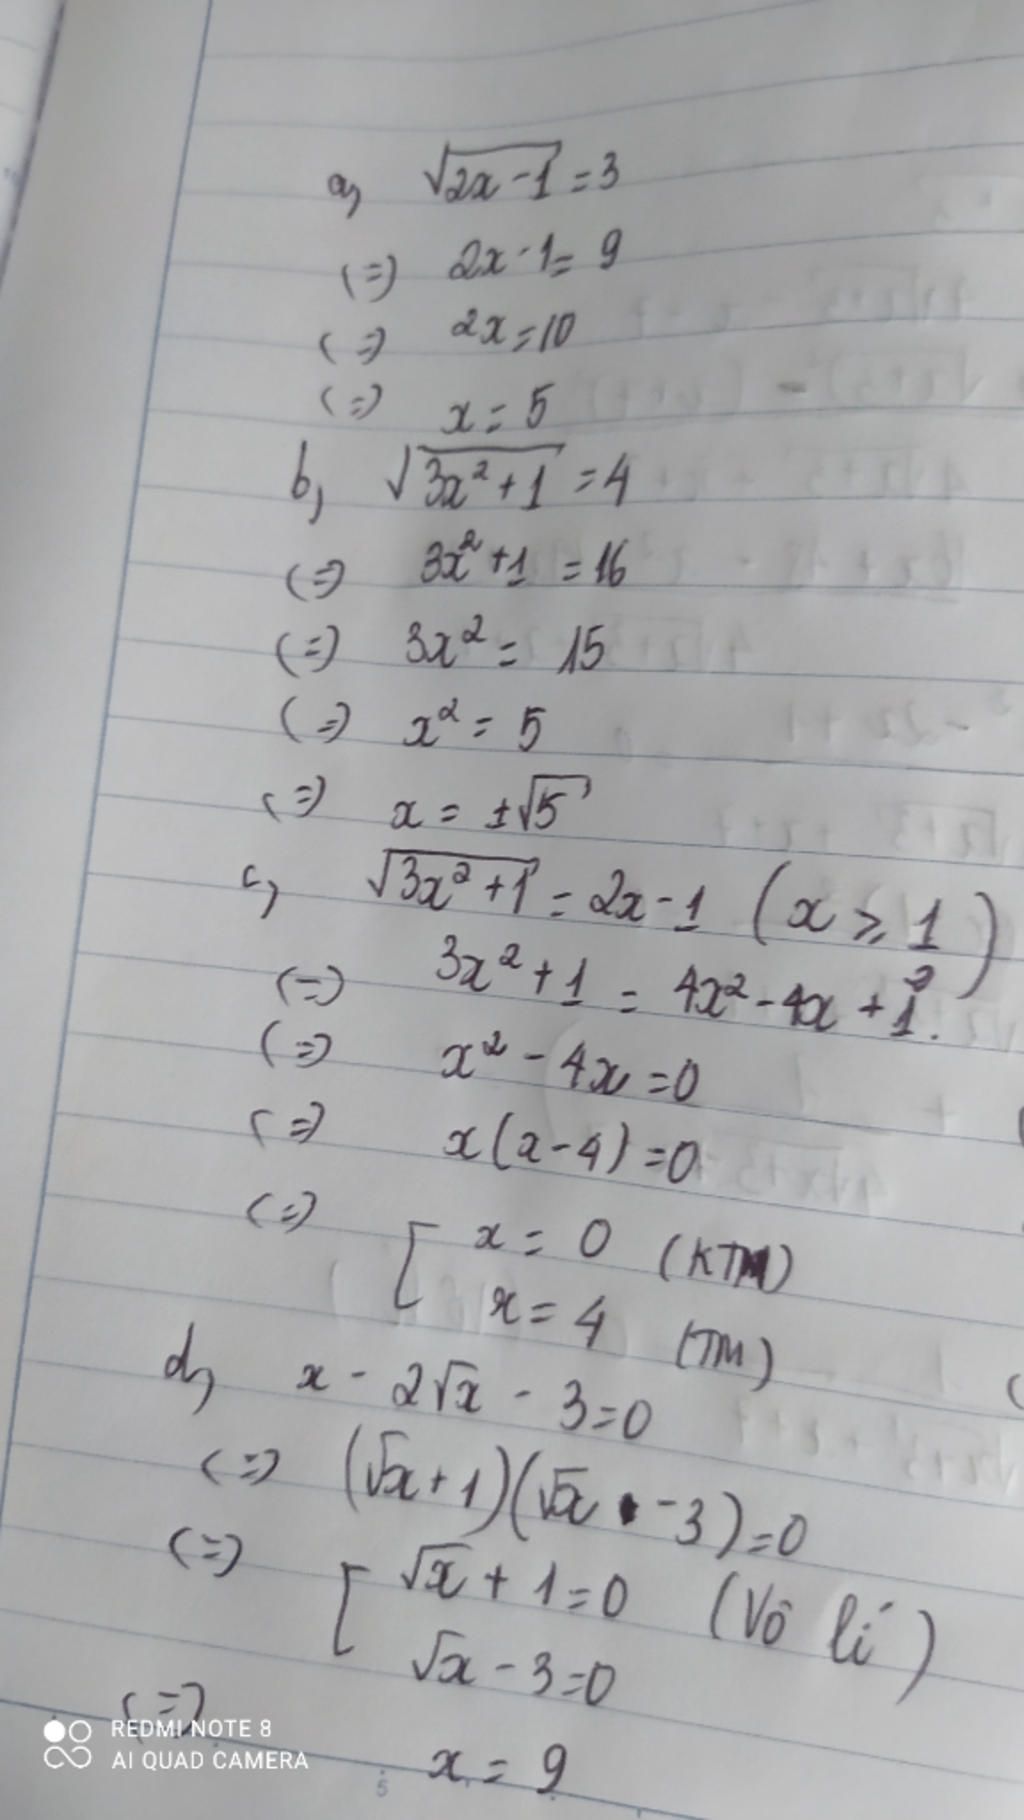 a, √2x-1 = 3
(=) 2x-1 = 9
(=) 2x = 10
(=) x = 5
b, √3x²+1 = 4
(=) 3x²+1 = 16
(=) 3x² = 15
(=) x² = 5
(=) x = ±√5
c, √3x²+1 = 2x-1 (x ≥ 1/2)
(=) 3x²+1 = 4x²-4x+1.
(=) x²-4x=0
(=) x(x-4)=0
(=) [ x = 0 (KTM)
x = 4 (TM)
d, x - 2√x - 3=0
(=) (√x+1)(√x -3)=0
(=) [ √x + 1=0 (Vô lí)
√x - 3=0
(=)
REDMI NOTE 8
AI QUAD CAMERA
x = 9
5